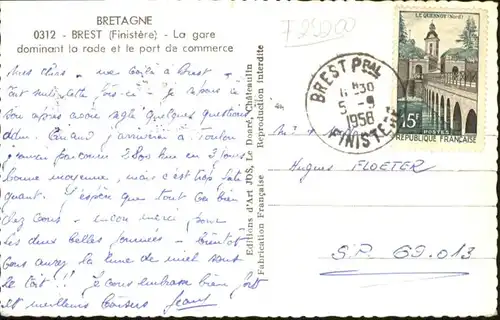 BRETAGNE
0312 - BREST (Finistère) - La gare
dominant la rade et le port de commerce
LE QUESNOY (Nord)
15F
POSTES
REPUBLIQUE FRANÇAISE
BREST PPAL
11 H30
5 - 9
1958
FINISTERE
Mes chéris - me voilà à Brest -
tout suite cette fois-ci - Je repars ce
soir après avoir réglé quelques questions
adm. Quand j'arriverai à Toulon
j'aurai parcouru 2800 km en 3 jours
bonne moyenne, mais c'est très fati
guant. J'espère que tout va bien
chez vous - encore merci pour
les deux belles journées - bientôt
vous aurez la lune de miel sous
le toit !! Je vous embrasse bien fort
et meilleurs baisers Jean
Editions d'Art JOS, Le Doaré, Châteaulin
Fabrication Française Reproduction Interdite
Hugues FLOETER
S.P. 69.013